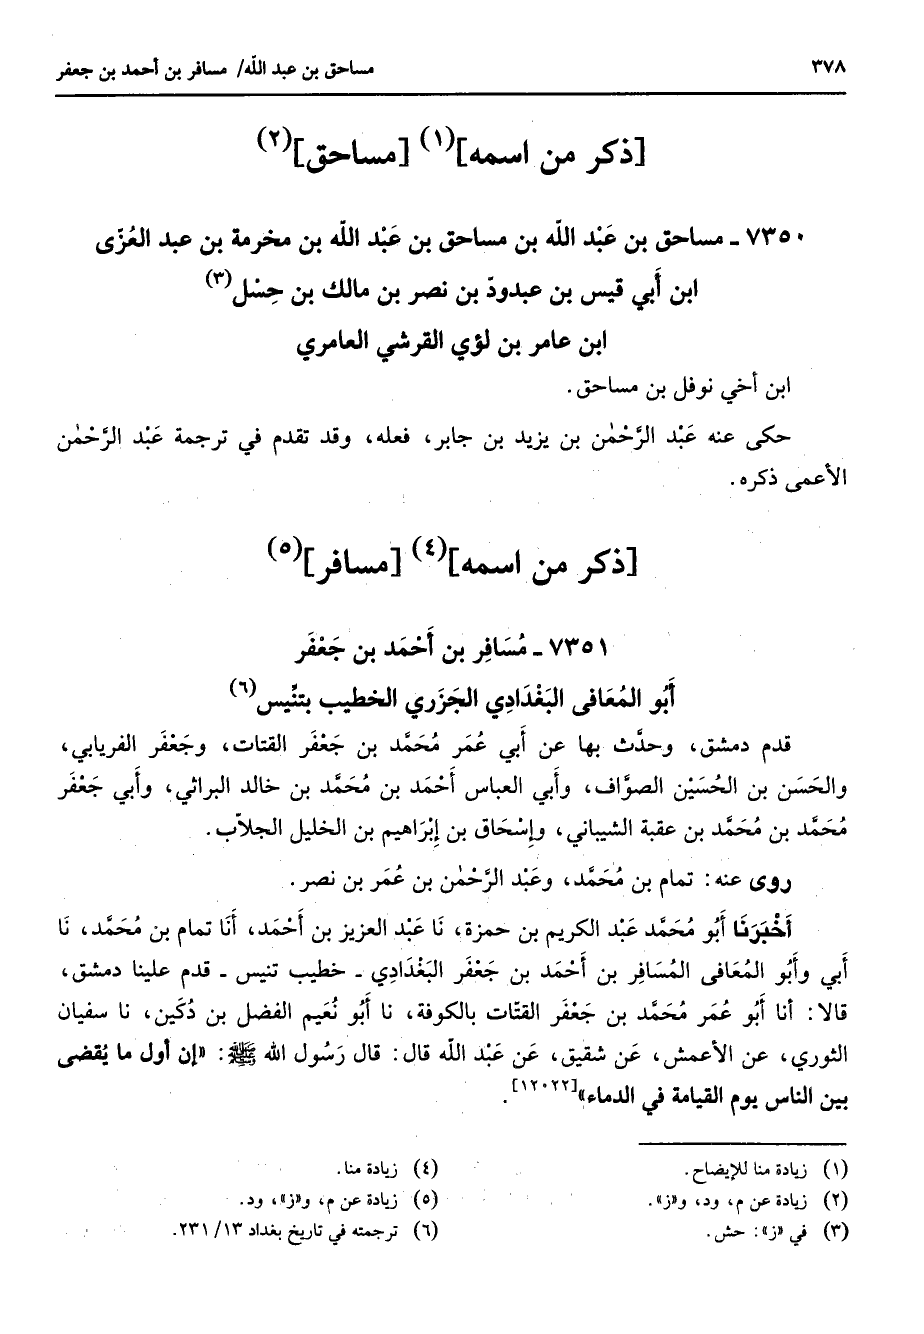 ٣٧٨ مساحق بن عبد اللّه/ مسافر بن أحمد بن جعفر
[ذكر من اسمه](١) [مساحق](٢)
٧٣٥٠ ـ مساحق بن عَبْد اللّه بن مساحق بن عَبْد اللّه بن مخرمة بن عبد العُزّى
ابن أَبي قيس بن عبدودّ بن نصر بن مالك بن حِسْل(٣)
ابن عامر بن لؤي القرشي العامري
ابن أخي نوفل بن مساحق.
حكى عنه عَبْد الرَّحْمٰن بن يزيد بن جابر، فعله، وقد تقدم في ترجمة عَبْد الرَّحْمٰن
الأعمى ذكره.
[ذكر من اسمه](٤) [مسافر](٥)
٧٣٥١ ـ مُسَافِر بن أَحْمَد بن جَعْفَر
أَبُو المُعَافى البَغْدَادِي الجَزَري الخطيب بتنِّيس(٦)
قدم دمشق، وحدَّث بها عن أَبي عُمَر مُحَمَّد بن جَعْفَر القتات، وجَعْفَر الفريابي،
والحَسَن بن الحُسَيْن الصوَّاف، وأَبي العباس أَحْمَد بن مُحَمَّد بن خالد البراثي، وأَبي جَعْفَر
مُحَمَّد بن مُحَمَّد بن عقبة الشيباني، وإِسْحَاق بن إِبْرَاهيم بن الخليل الجلاّب.
روى عنه: تمام بن مُحَمَّد، وعَبْد الرَّحْمٰن بن عُمَر بن نصر.
أَخْبَرَنَا أَبُو مُحَمَّد عَبْد الكريم بن حمزة، نَا عَبْد العزيز بن أَحْمَد، أَنَا تمام بن مُحَمَّد، نَا
أَبي وأَبُو المُعَافى المُسَافِر بن أَحْمَد بن جَعْفَر البَغْدَادِي ـ خطيب تنيس ـ قدم علينا دمشق،
قالا: أنا أَبُو عُمَر مُحَمَّد بن جَعْفَر القتّات بالكوفة، نا أَبُو نُعَيم الفضل بن دُكَين، نا سفيان
الثوري، عن الأعمش، عَن شقيق، عَن عَبْد اللّه قال: قال رَسُول الله ﷺ: «إن أول ما يُقضى
بين الناس يوم القيامة في الدماء»[١٢٠٢٢].
(١) زيادة منا للإيضاح.
(٢) زيادة عن م، ود، و«ز».
(٣) في «ز»: حش.
(٤) زيادة منا.
(٥) زيادة عن م، و«ز»، ود.
(٦) ترجمته في تاريخ بغداد ١٣/ ٢٣١.